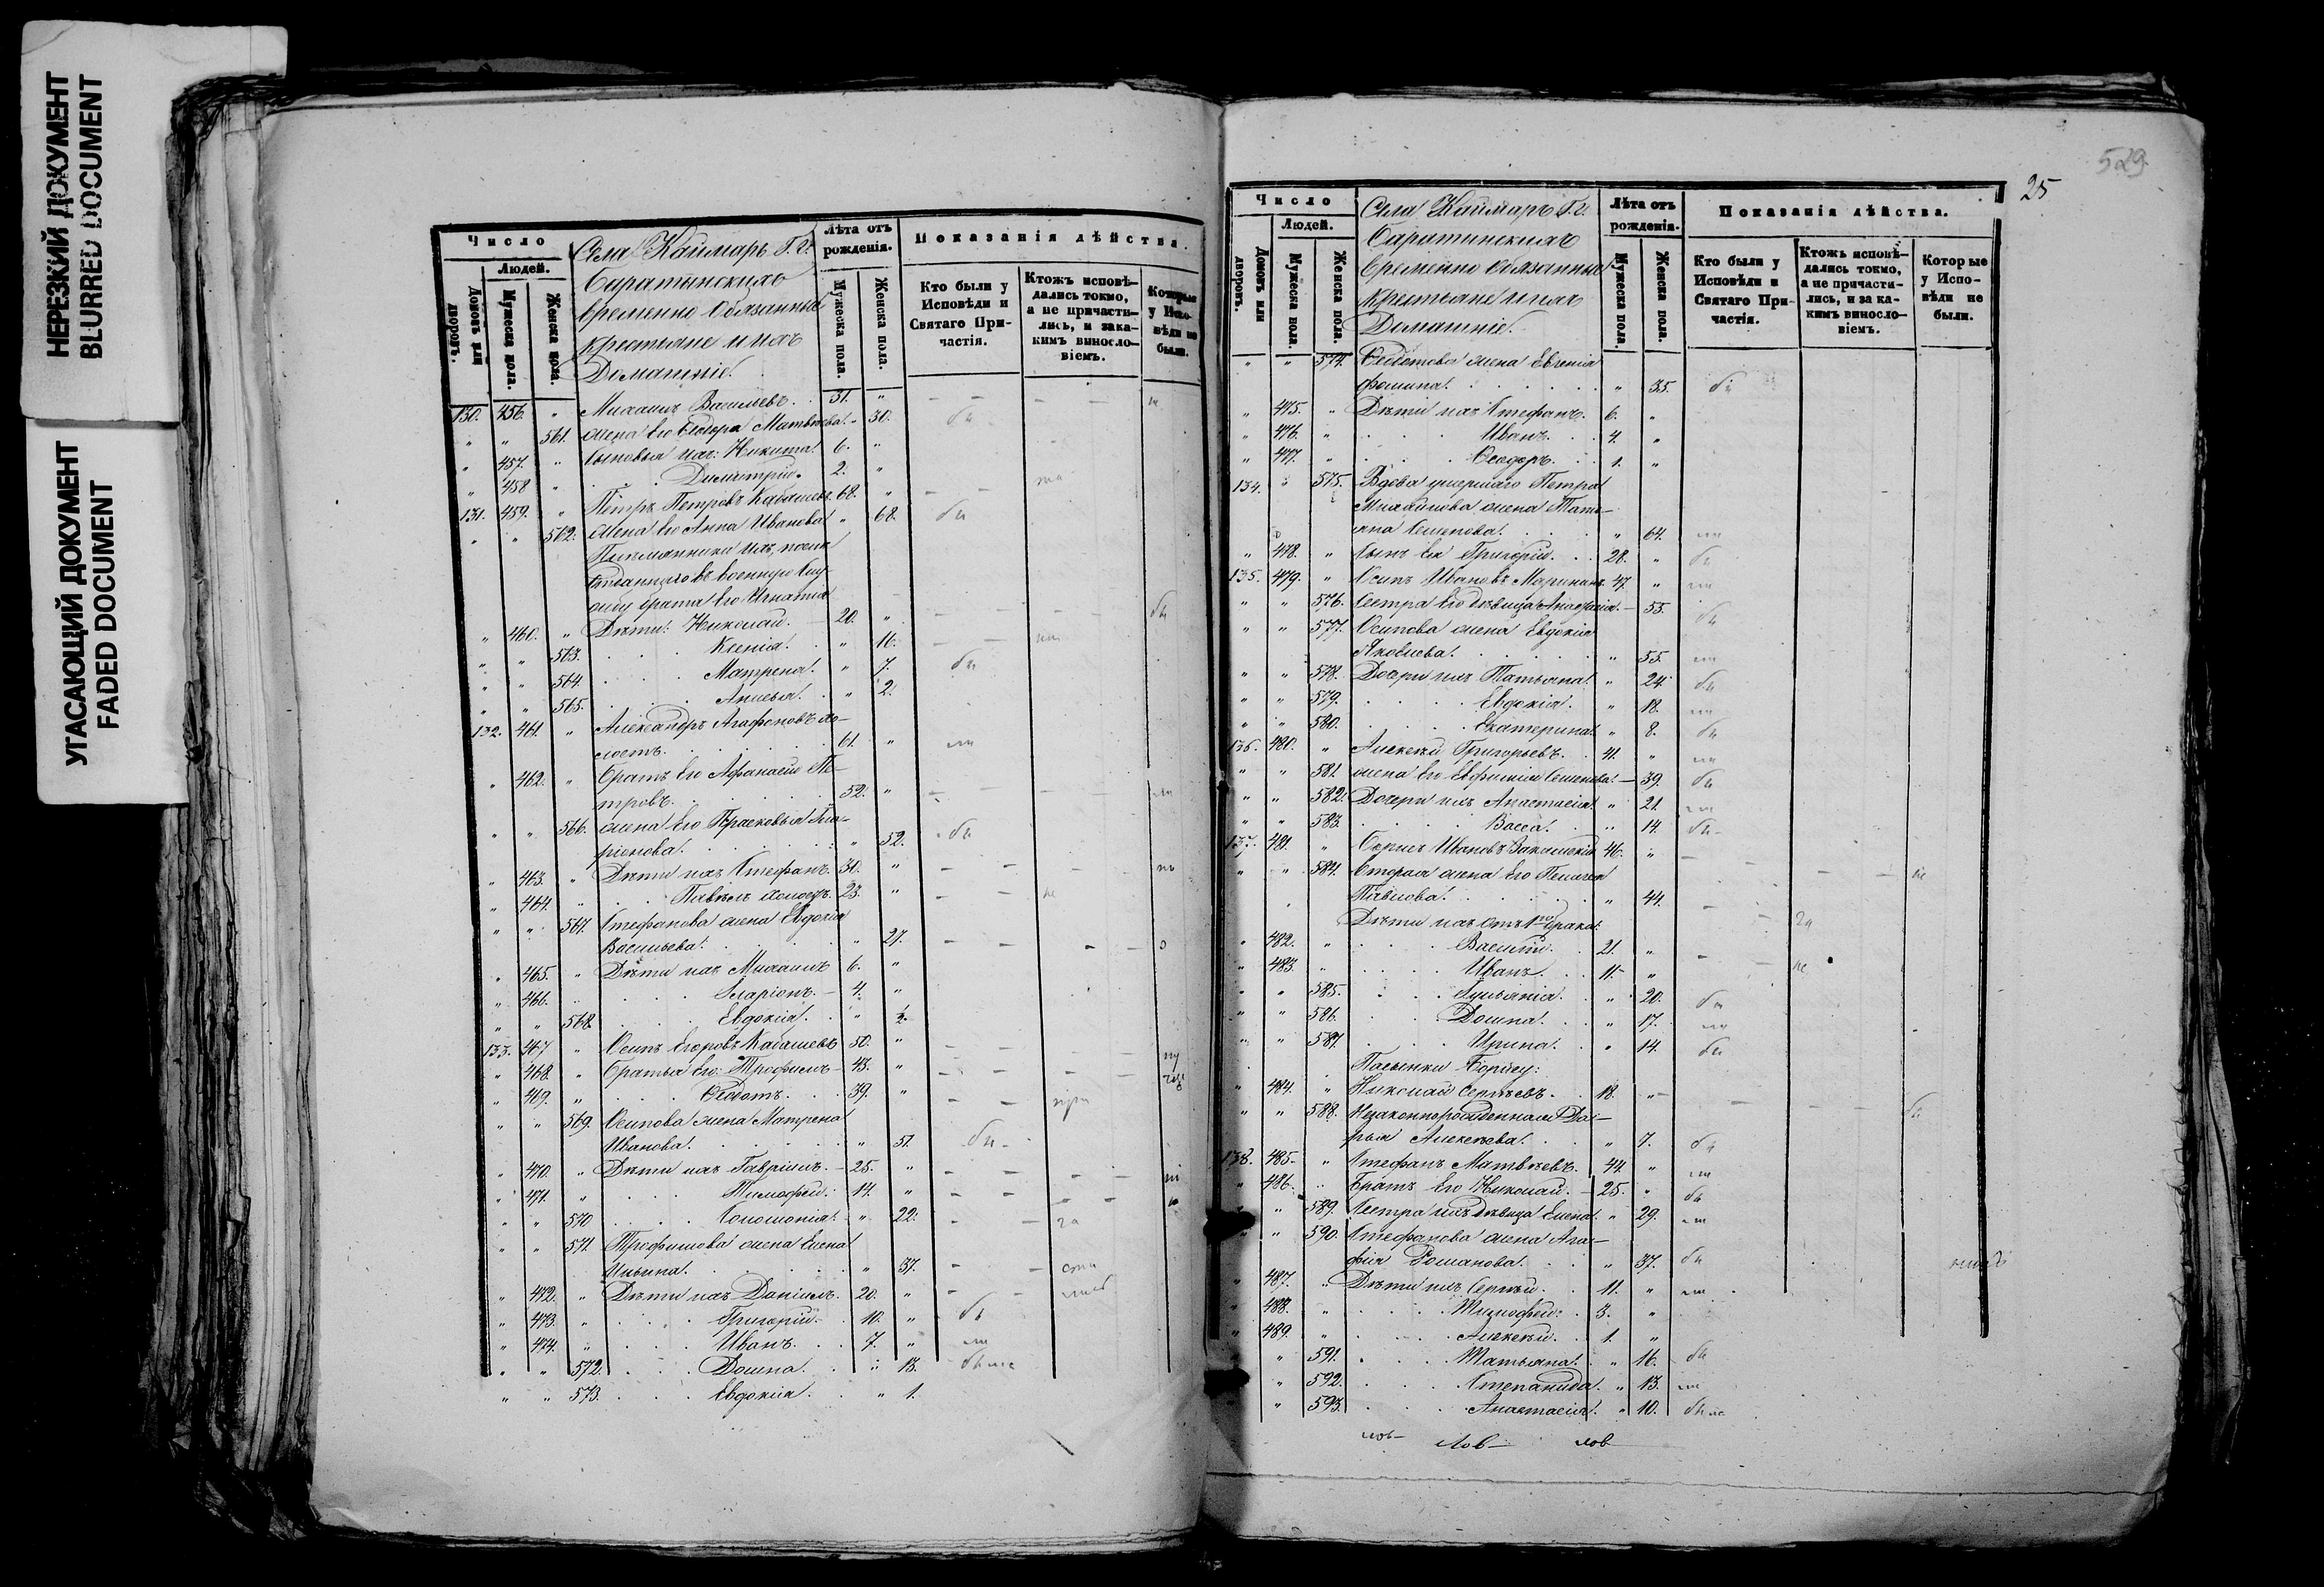 НЕРЕЗКИЙ ДОКУМЕНТ
BLURRED DOCUMENT
УГАСАЮЩИЙ ДОКУМЕНТ
FADED DOCUMENT
Число
Людей.
Домовъ или дворовъ.
Мужеска пола.
Женска пола.
Села Каймаръ Г. г.
временно обязанные
крестьяне и ихъ
Домашніе.
Лѣта отъ рожденія.
Мужеска пола.
Женска пола.
Показанія дѣйства.
Кто были у Исповѣди и Святаго Причастія.
Ктожъ исповѣдались токмо, а не причастились, и за какимъ винословіемъ.
Которые у Исповѣди не были.
130. 456. " Михаилъ Васильевъ. 31. "
" " 561. жена его Матвѣева. " 30.
" 457. " Сыновья ихъ: Никита. 6. "
" 458 " Димитрій. 2. "
131. 459. " Петръ Петровъ Кабашевъ 68. "
" " 562. жена его Анна Иванова " 68.
Племянники ихъ,
въ военную слу-
жбу брата его Игнатія
" 460. " Дѣти: Николай. 20. "
" " 563. Ксенія. " 16.
" " 564. Матрена. " 7.
" " 565. " 2.
132. 461. " Александръ Агафоновъ хо-
лостъ. 61. "
" 462. " Братъ его Афанасій Пе-
тровъ. 52. "
" " 566. жена его Прасковья Ила-
ріонова. " 52.
" 463. " Дѣти ихъ Стефанъ. 30. "
" 464. " Павелъ холостъ. 23. "
" " 567. Стефанова жена Евдокія
Васильева. " 27.
" 465. " Дѣти ихъ Михаилъ 6. "
" 466. Иларіонъ. 4. "
" " 568. Евдокія. " 2.
133. 467 " Осипъ Егоровъ Кабашевъ 50. "
" 468. " Братья его: Трофимъ 43. "
" 469. " Ѳедотъ. 39. "
" " 569. Осипова жена Матрена
Иванова. " 51.
" 470. " Дѣти ихъ Гавріилъ. 25. "
" 471. " Тимофей. 14. "
" " 570 Соломонія. " 22.
" " 571. Трофимова жена Елена
Ильина. " 37.
" 472. " Дѣти ихъ Даніилъ. 20. "
" 473. " Григорій. 10. "
" 474. " Иванъ. 7. "
" " 572. Домна. " 13.
" " 573. Евдокія. " 1.
529.
25
Число
Людей.
Домовъ или дворовъ.
Мужеска пола.
Женска пола.
Села Каймаръ Г. г.
временно обязанные
крестьяне и ихъ
Домашніе.
Лѣта отъ рожденія.
Мужеска пола.
Женска пола.
Показанія дѣйства.
Кто были у Исповѣди и Святаго Причастія.
Ктожъ исповѣдались токмо, а не причастились, и за какимъ винословіемъ.
Которые у Исповѣди не были.
" " 574. Ѳедотова жена Евгенія
Фомина. " 35.
" 475. " Дѣти ихъ Стефанъ. 6. "
" 476. " Иванъ. 4. "
" 477. " Ѳеодоръ. 1. "
134. " 575. Вдова умершаго Петра
Михайлова жена Татья-
яна Семенова. " 64.
" 478. " Сынъ ея Григорій. 28. "
135. 479. " Осипъ Ивановъ 47. "
" " 576. Сестра его дѣвица 55.
" " 577. Осипова жена Евдокія
Яковлева. " 55.
" " 578. Дочери ихъ Татьяна. " 24.
" " 579. Евдокія. " 18.
" " 580. Екатерина. " 8.
136. 480. " Алексѣй Григорьевъ. 41. "
" " 581. жена его Евфимія Семенова. 39.
" " 582. Дочери ихъ Анастасія. " 21.
" " 583. Васса. " 14.
137. 481. " Борисъ Ивановъ 46. "
" " 584. Вторая жена его Пелагея
Павлова. " 44.
Дѣти ихъ отъ 1го брака:
" 482. " Василій. 21. "
" 483. " Иванъ. 11. "
" " 585. Іуліанія. " 20.
" " 586. Домна. " 17.
" " 587. Ирина. " 14.
Пасынки Борису:
" 484. " Николай Сергѣевъ. 18. "
" " 588. Незаконнорожденная Да-
рья Алексѣева. " 7.
138. 485. " Стефанъ Матвѣевъ. 44. "
" 486. " Братъ его Николай. 25. "
" 589. Сестра ихъ дѣвица Елена. " 29.
" " 590. Стефанова жена Ага-
фія Романова. " 37.
" 487. " Дѣти ихъ Сергѣй. 11. "
" 488. " Тимофей. 3. "
" 489. " Алексѣй. 1. "
" 591. Татьяна. " 16.
" 592. Степанида. " 13.
" 593. Анастасія. " 10.